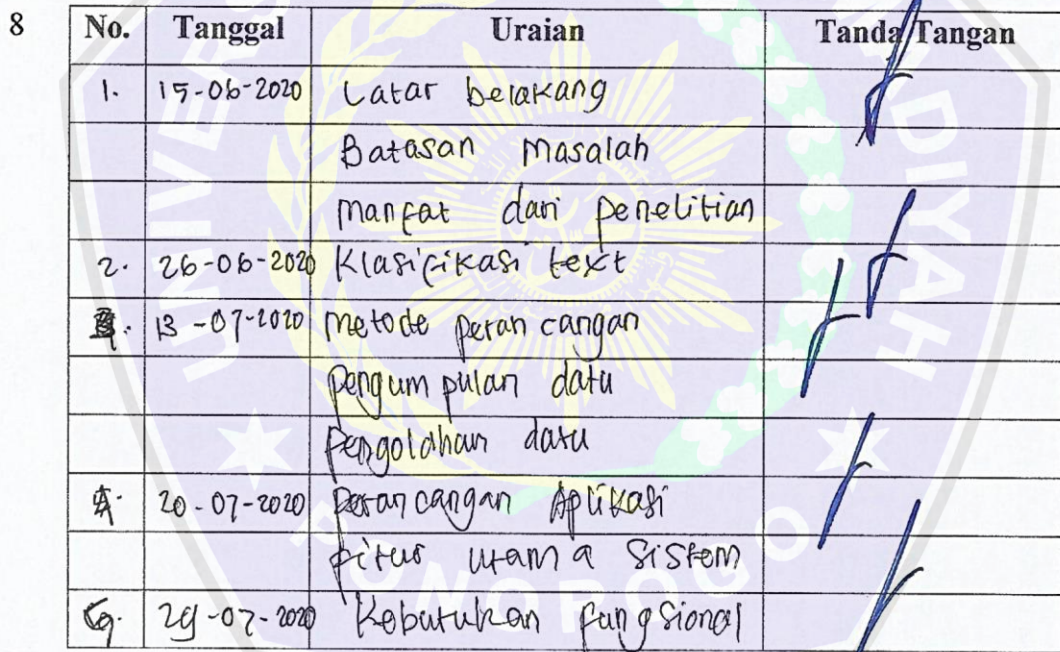 8
No. Tanggal Uraian Tanda Tangan
1. 15-06-2020 Latar belakang
Batasan Masalah
manfat dari penelitian
2. 26-06-2020 Klasifikasi text
3. 13-07-2020 metode perancangan
pengumpulan data
pengolahan data
4. 20-07-2020 perancangan Aplikasi
fitur utama Sistem
5. 29-07-2020 Kebutuhan fungsional
PONOROGO